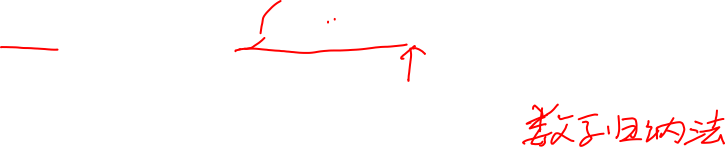 数学归纳法